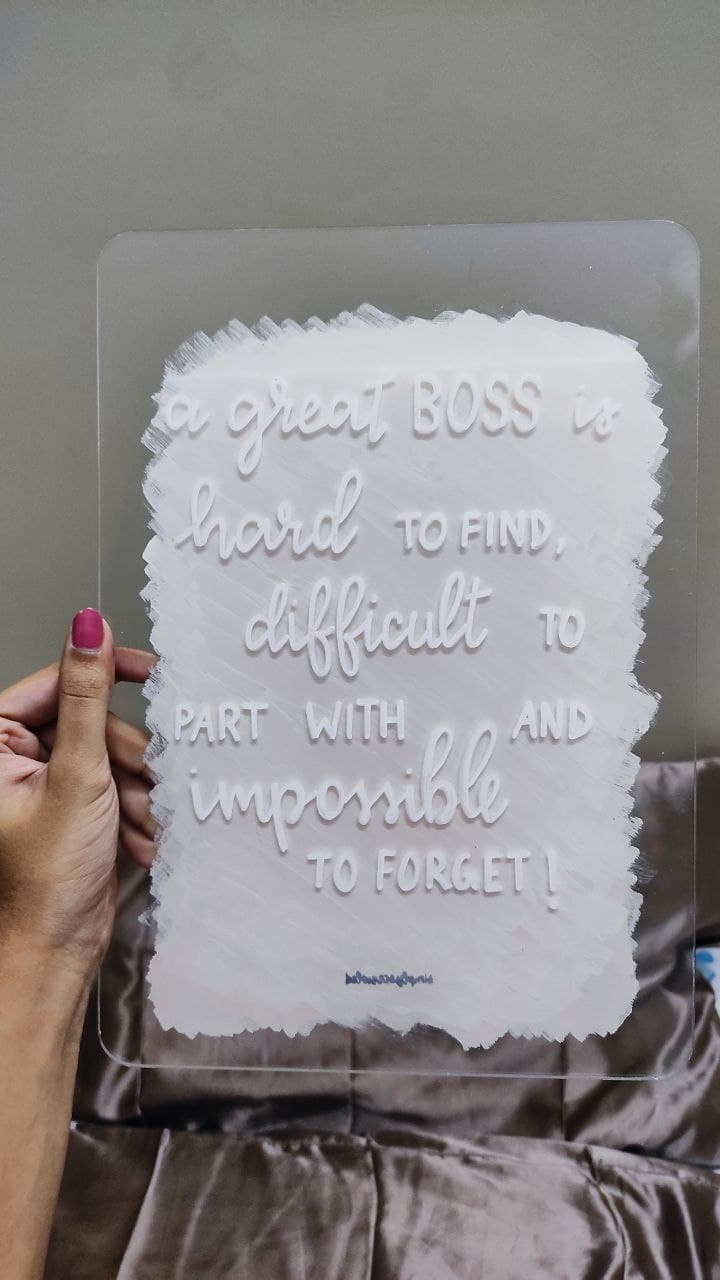 a great BOSS is
hard TO FIND,
difficult TO
PART WITH AND
impossible
TO FORGET!